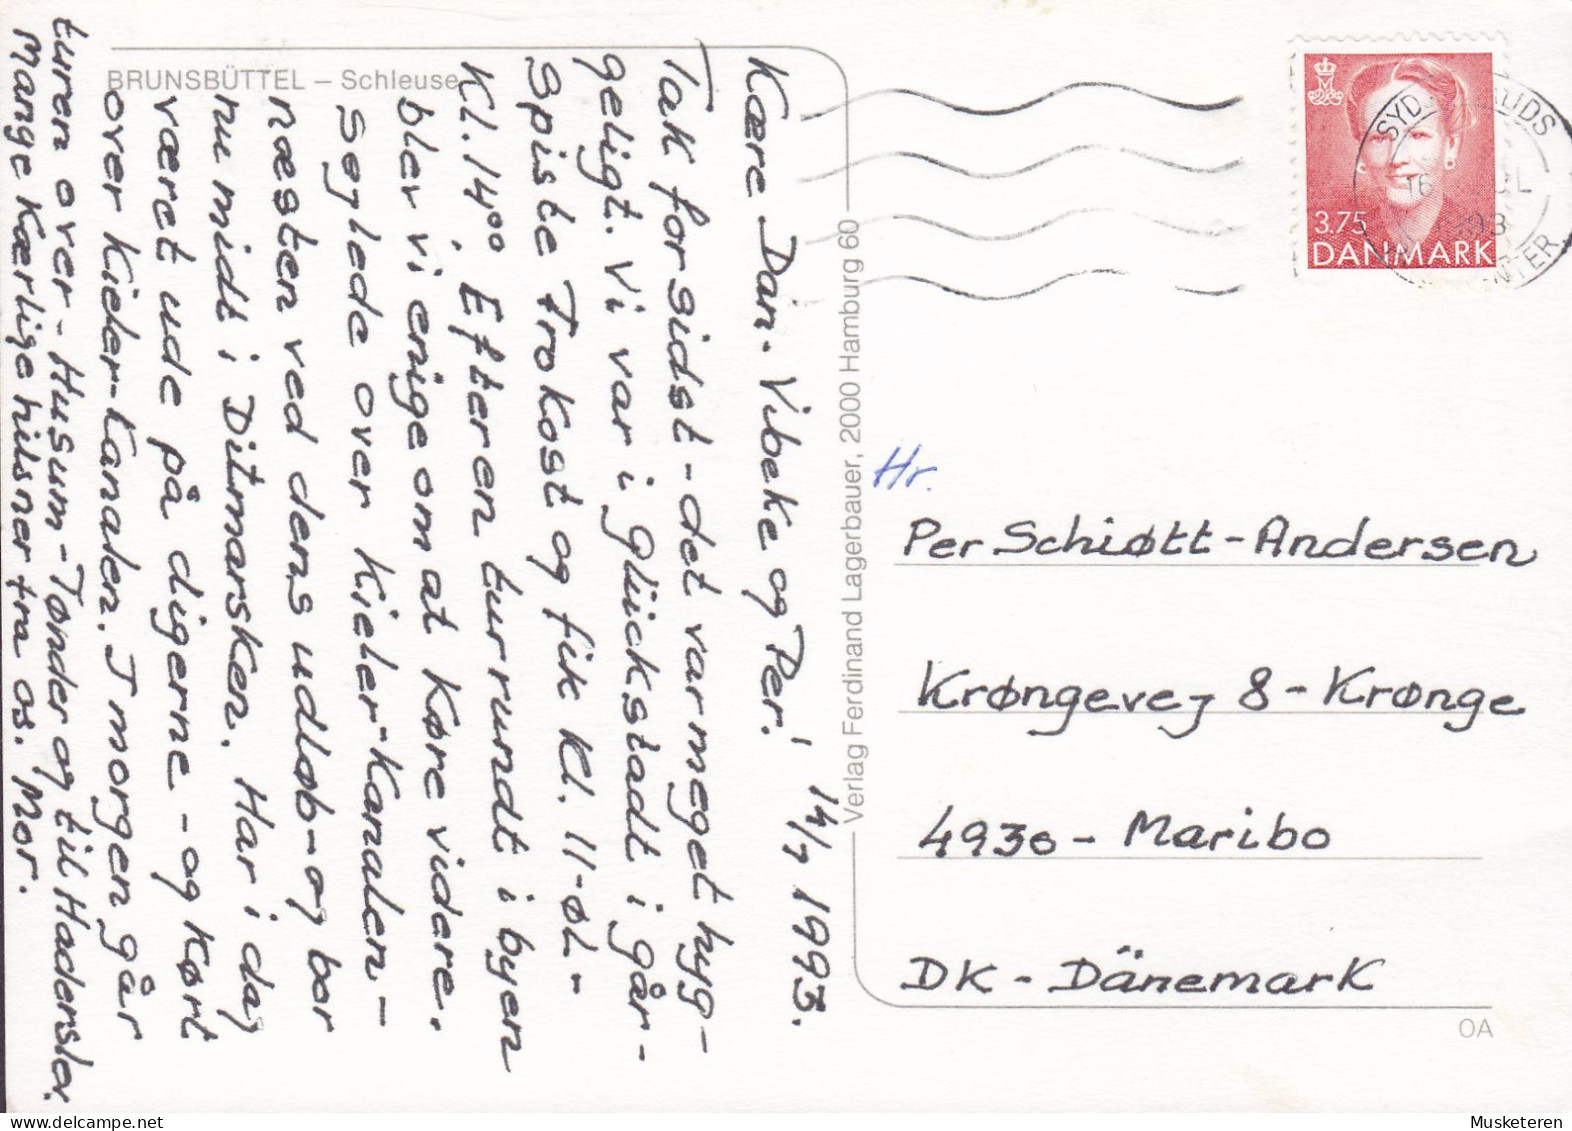 BRUNSBÜTTEL – Schleuse
14/7 1993.
Kære Dan. Vibeke og Per!
Tak for sidst - det var meget hyg-
geligt. Vi var i Glückstadt i går-
Spiste Frokost og fik kl. 11-øl-
Kl. 14⁰⁰. Efter en tur rundt i byen
blev vi enige om at køre videre.
Sejlede over Kieler-Kanalen-
næsten ved dens udløb-og bor
nu midt i Ditmarsken. Har i dag
været ude på digerne - og kørt
over Kieler-Kanalen. I morgen går
turen over - Husum-Tønder og til Haderslev.
Mange Kærlige hilsner fra os. Mor.
Verlag Ferdinand Lagerbauer, 2000 Hamburg 60
3.75
DANMARK
SYD
16
93
Hr.
Per Schiøtt-Andersen
Krøngevej 8 - Krønge
4930 - Maribo
DK - Dänemark
OA
Musketeren for delcampe.net